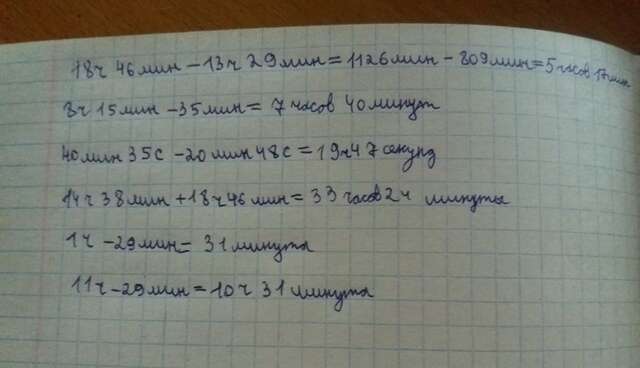 18ч 46мин - 13ч 29мин = 1126мин - 809мин = 5часов 17мин
8ч 15мин - 35мин = 7часов 40минут
40мин 35с - 20мин 48с = 19ч47секунд
14ч 38мин + 18ч46мин = 33часов24 минуты
1ч - 29мин = 31минута
11ч - 29мин = 10ч 31минута